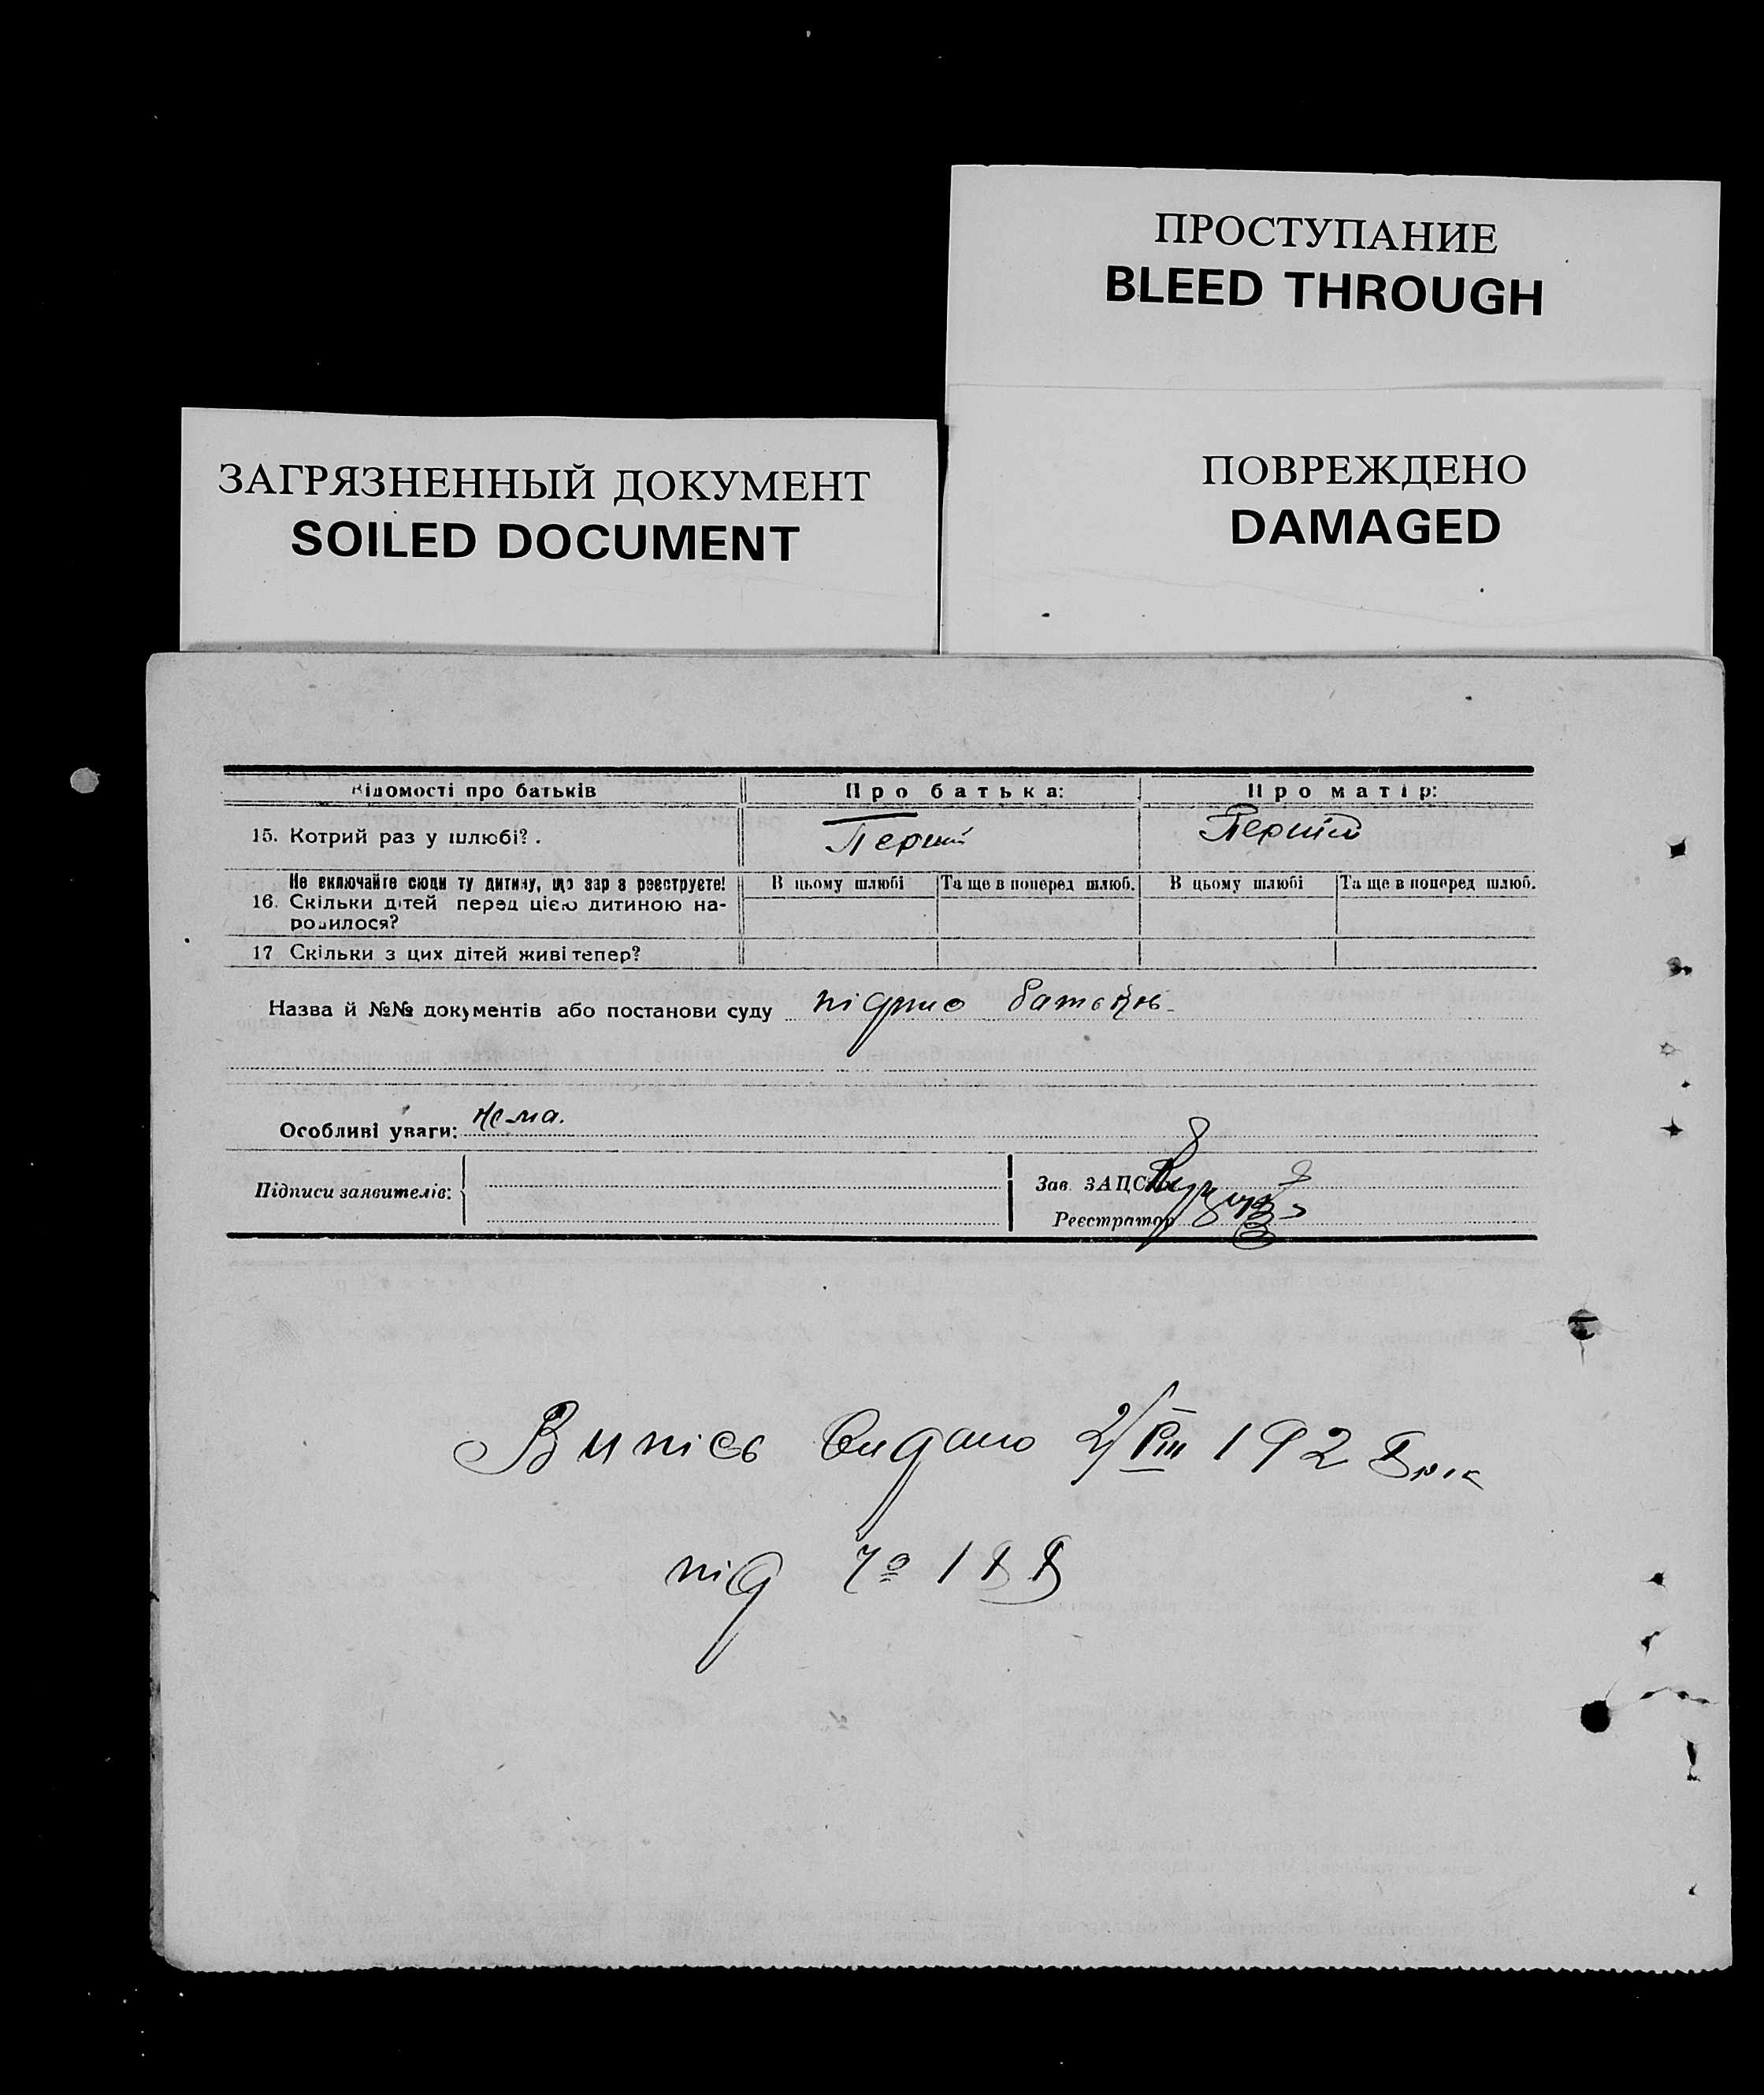 ПРОСТУПАНИЕ
BLEED THROUGH
ЗАГРЯЗНЕННЫЙ ДОКУМЕНТ
SOILED DOCUMENT
ПОВРЕЖДЕНО
DAMAGED
Відомості про батьків Про батька: Про матір:
15. Котрий раз у шлюбі?. Перший Перший
Не включайте сюди ту дитину, що зараз реєструєте! В цьому шлюбі Та ще в поперед шлюб. В цьому шлюбі Та ще в поперед шлюб.
16. Скільки дітей перед цією дитиною на-
родилося?
17 Скільки з цих дітей живі тепер?
Назва й №№ документів або постанови суду
Особливі уваги: нема.
Підписи заявителів: Зав. ЗАЦС
Реєстратор
Випісь видано 2/VIII 1928 рік
під № 188